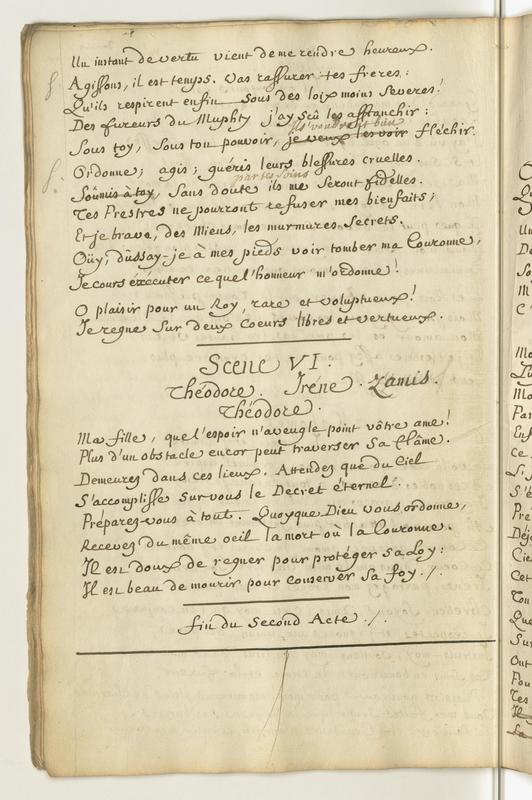 Un instant de vertu vient de me rendre heureux.
Agissons, il est temps. Vas rassurer tes freres:
Qu'ils respirent enfin sous des loix moins severes!
Des fureurs du Muphty j'ay sçû les affranchir:
ils vendront bien
Sous toy, sous ton pouvoir, je veux les voir fléchir.
Ordonne; agis; guéris leurs blessures cruelles.
par tes soins
Soûmis à toy, sans doute ils me seront fidélles.
Tes Prestres ne pourront refuser mes bienfaits;
Et je brave, des Miens, les murmures secrets.
Oüy, dûssay-je à mes pieds voir tomber ma Couronne,
Je cours éxécuter ce que l'honneur m'ordonne!
O plaisir pour un Roy, rare et voluptueux!
Je regne sur deux Coeurs libres et vertueux.
Scene VI.
Théodore, Iréne. Zamis.
Théodore.
Ma fille, que l'espoir n'aveugle point vôtre ame!
Plus d'un obstacle encor peut traverser sa flâme.
Demeurez dans ces lieux. Attendez que du Ciel
S'accomplisse sur vous le Decret éternel.
Préparez-vous à tout. Quoyque Dieu vous ordonne,
Recevez du même oeil la mort où la Couronne.
Il est doux de regner pour protéger sa Loy:
Il est beau de mourir pour conserver sa foy./.
fin du Second Acte./.